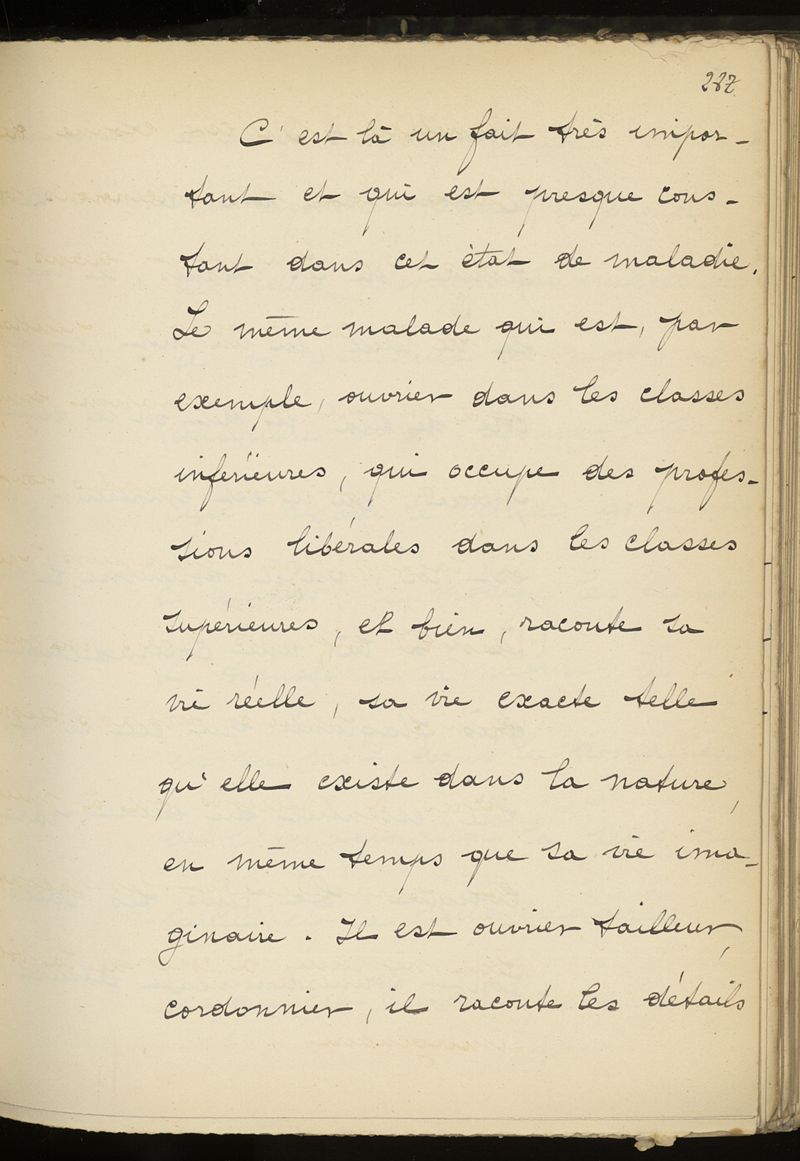 227
C'est là un fait très impor-
tant et qui est presque cons-
tant dans cet état de maladie.
Le même malade qui est, par
exemple, ouvrier dans les classes
inférieures, qui occupe des profes-
sions libérales dans les classes
supérieures, et bien, raconte sa
vie réelle, sa vie exacte telle
qu'elle existe dans la nature,
en même temps que sa vie ima-
ginaire. Il est ouvrier tailleur,
cordonnier, il raconte les détails